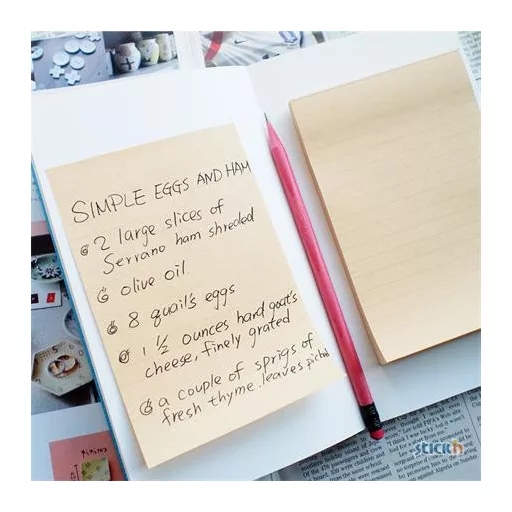 SIMPLE EGGS AND HAM
2 large slices of
Serrano ham shreded
olive oil
8 quail's eggs
1 ½ ounces hard goat's
cheese, finely grated
a couple of sprigs of
fresh thyme, leaves picked
STICK'N